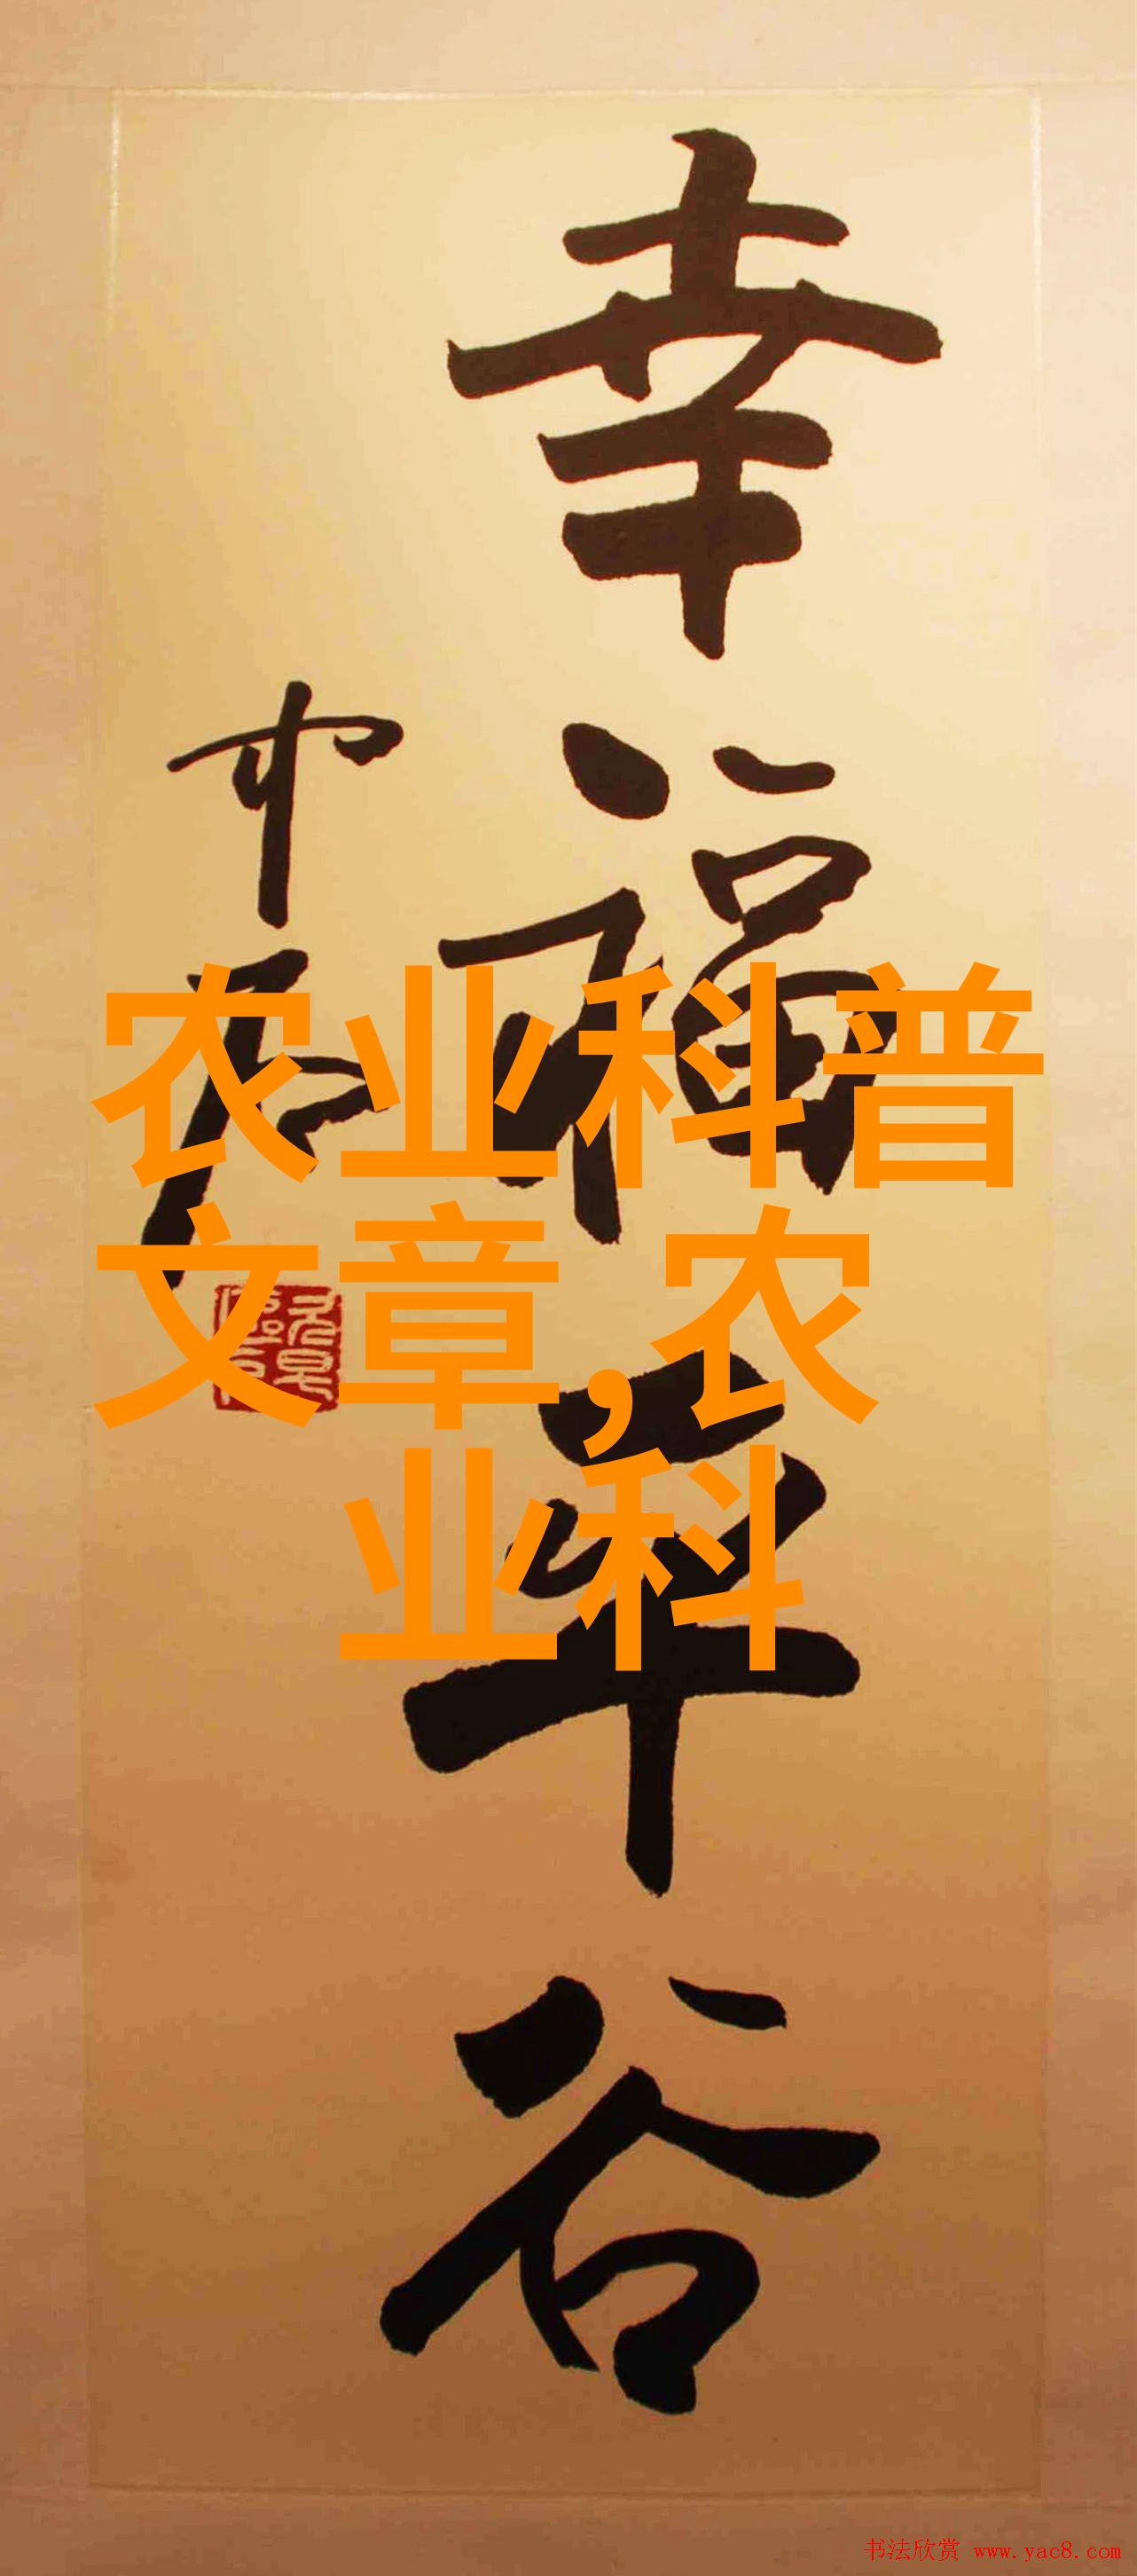 幸福平谷
中石
农业科普
文章,农
业科
书法欣赏 www.yac8.com